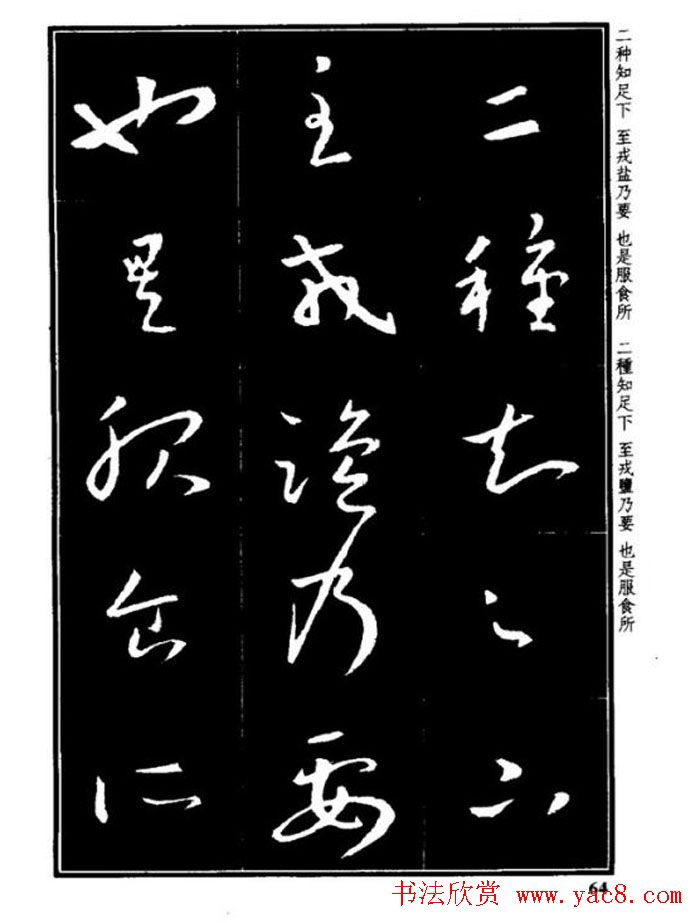 二種知足下
至戎鹽乃要
也是服食所
二种知足下 至戎盐乃要 也是服食所
二種知足下 至戎鹽乃要 也是服食所
64
书法欣赏 www.yac8.com